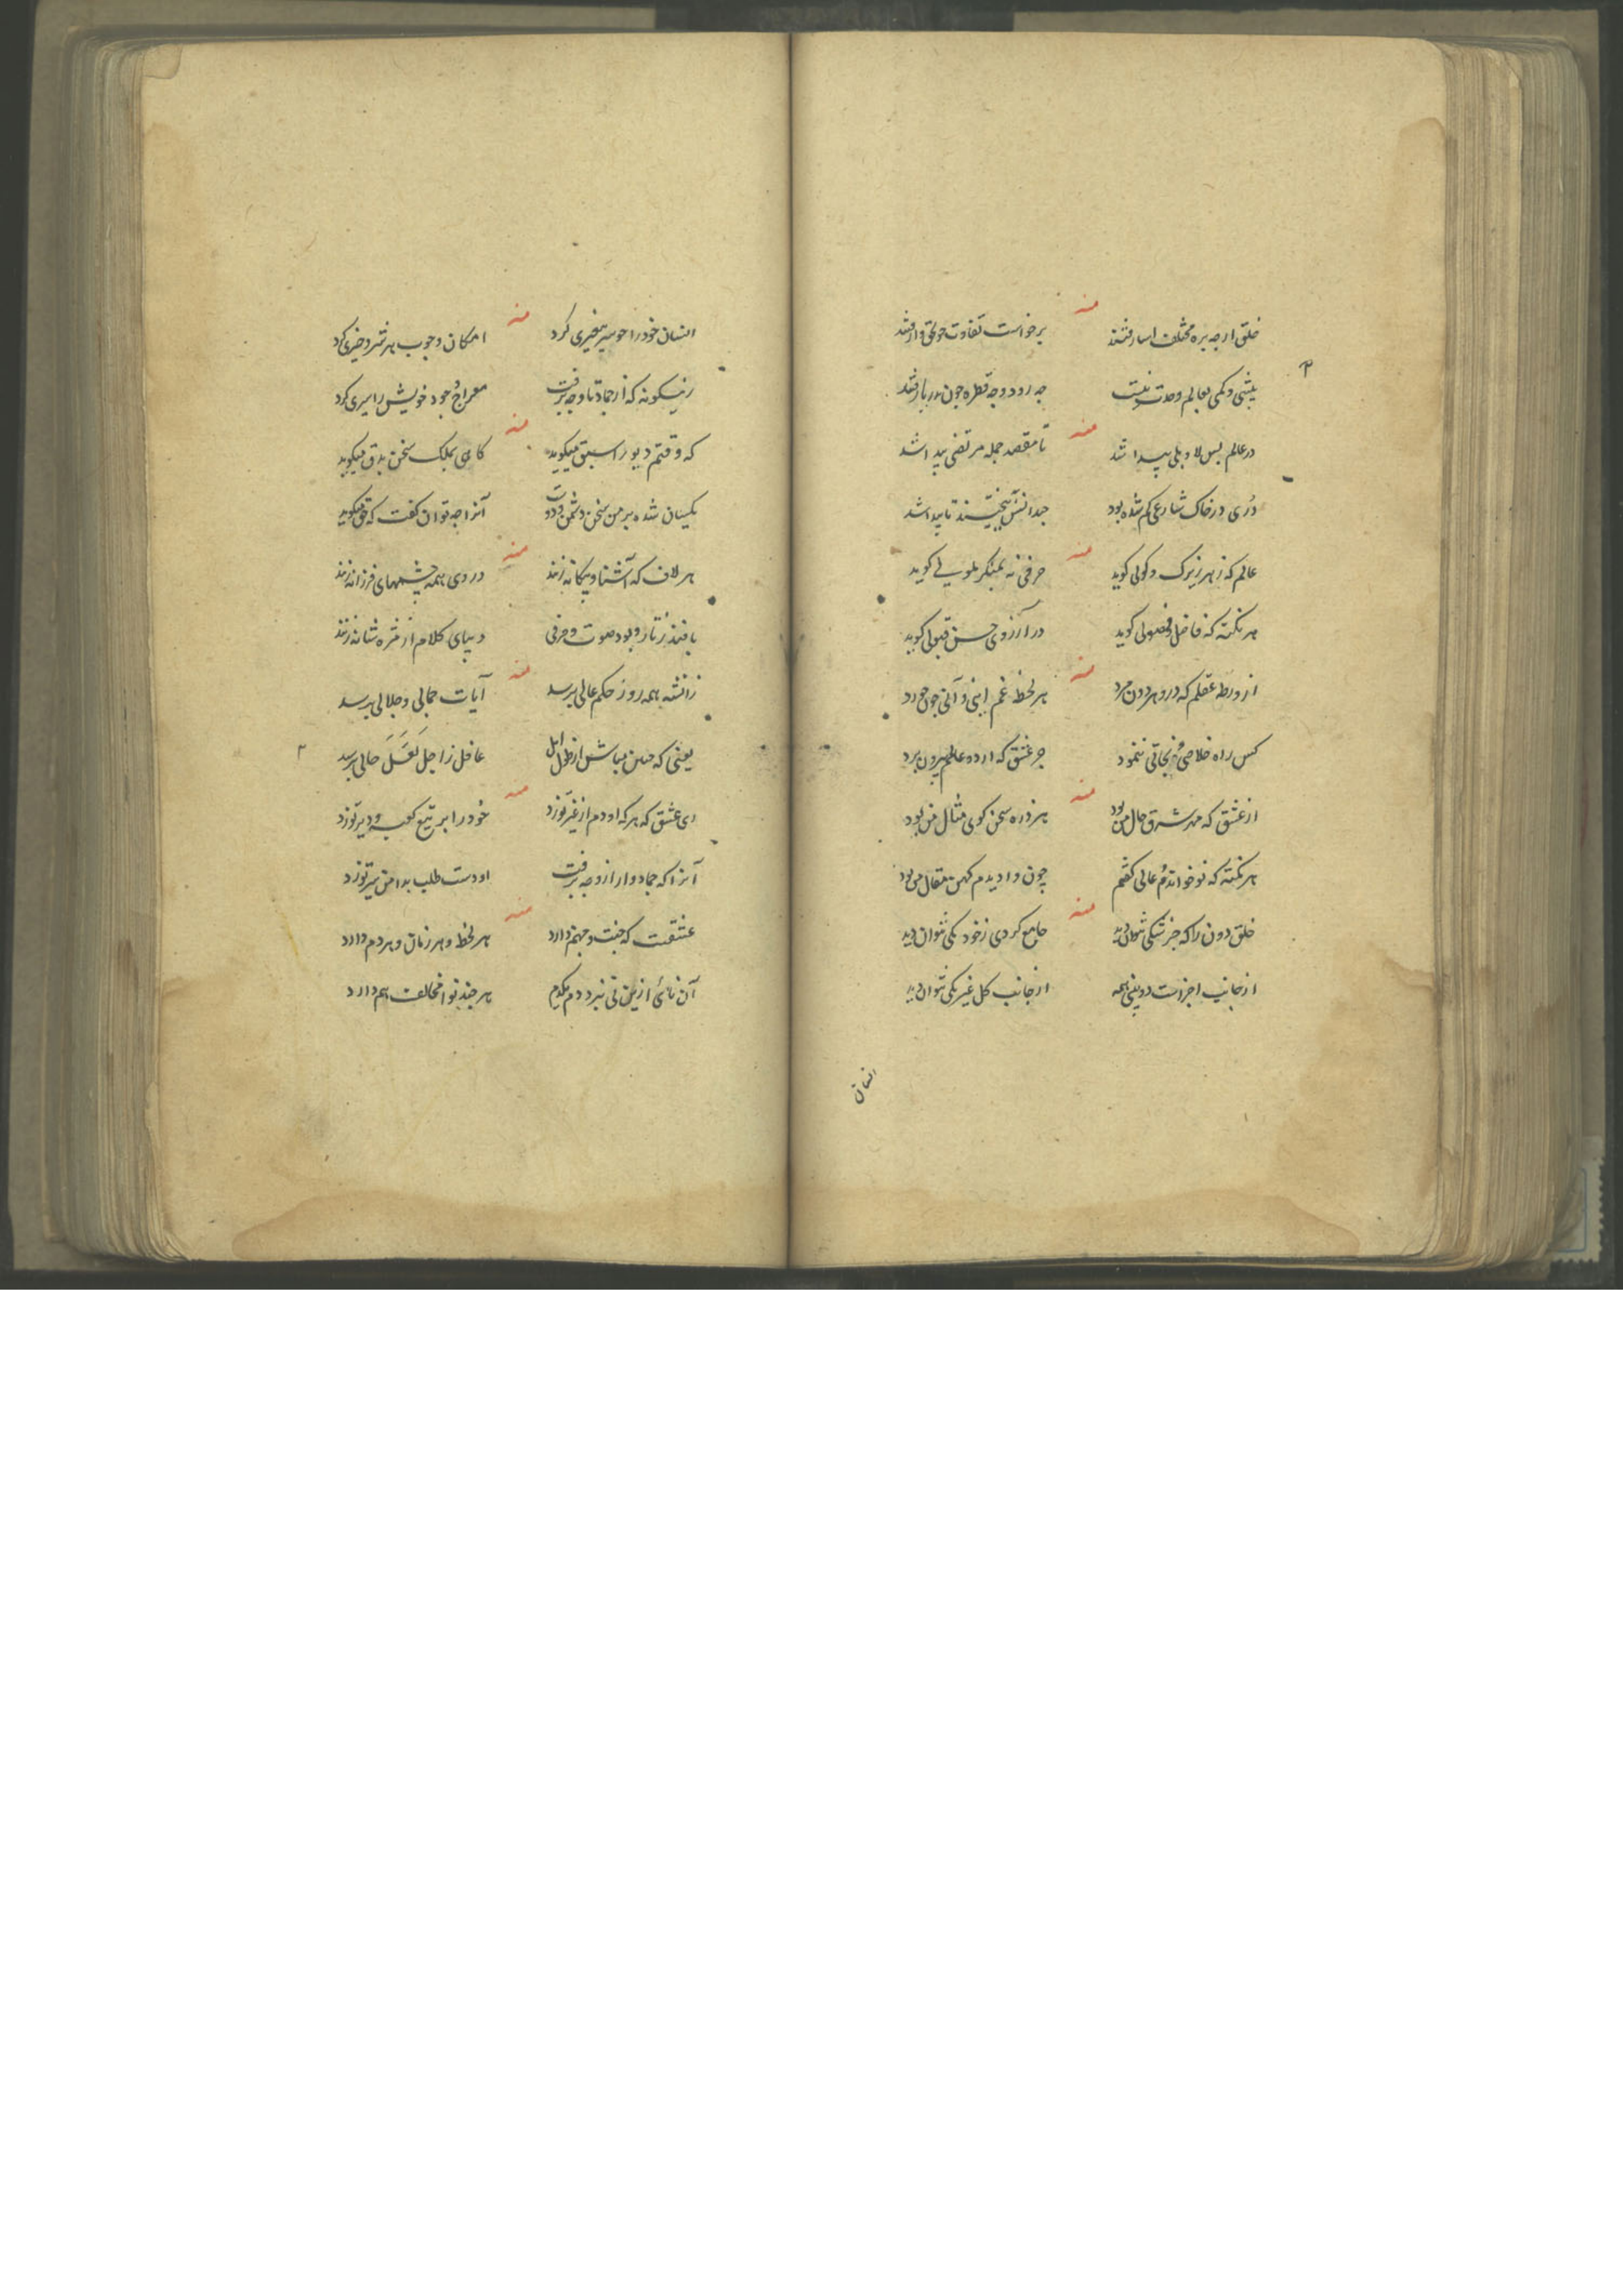 منه
خلق ارچه بره مختلف اسما رفتند برخواست تفاوت چو بحق وا رفتند
بیشی و کمی بعالم وحدت نیست چه رود و چه قطره چون بدریا رفتند
منه
در عالم بس لا و بلی پیدا شد تا مقصد جمله مرتضی پیدا شد
دری در خاک شارعی کم شده بود چندانش ببیختند تا پیدا شد
منه
عالم که ز هر زیرک و کولی کوید حرفی نه
هر نکته که فاضل و فضولی کوید در آرزوی حسن قبولی کوید
منه
از ورطه عقلم که درو هر دون مرد هر لحظه غم اینی و آنی چون خورد
کس راه خلاصی و نجاتی ننمود جز عشق که از دو عالمم بیرون برد
منه
از عشق که مهر مشرق حال من بود هر ذره سخن کوی مثال من بود
هر نکته که نو خواندم و عالی کفتم چون وا دیدم کهن مقال من بود
منه
خلق دون را که جز بشکی نتوان دید جامع کردی ز خود یکی نتوان دید
از جانب اجزاست دو بینی همه از جانب کل غیر یکی نتوان دید
انسان
منه
انسان خود را چو سیر غیری کرد امکان وجوب هر شر و خیری کرد
زینکونه که از جماد تا وجه برفت معراج وجود خویش را سیری کرد
منه
که وقتم دیو را سبق میکوید کاهی ملک سخن میکوید
یکسان شده بر من سخن دشمن و دوست آنرا چه توان کفت که حق میکوید
منه
هر لاف که آشنا و بیکانه زنند در وی همه چشمهای فرزانه زنند
بافند ز تار و پود صوت و حرفی دیبای کلام از مژه شانه زنند
منه
زان شه همه روز حکم عالی برسد آیات جمالی و جلالی برسد
یعنی که مباش از طول امل غافل ز اجل حالی برسد
منه
ای عشق که هر که او دم از غیر تو زد خود را بر تیغ کعبه و دیر تو زد
آنرا که جمادوار از وجه برفت او دست طلب بدامن سیر تو زد
منه
عشقست که جنت و جهنم دارد هر لحظه و هر زمان و هر دم دارد
آن نائی ازین نی نبرد دم یکدم هر چند نوا مخالف هم دارد